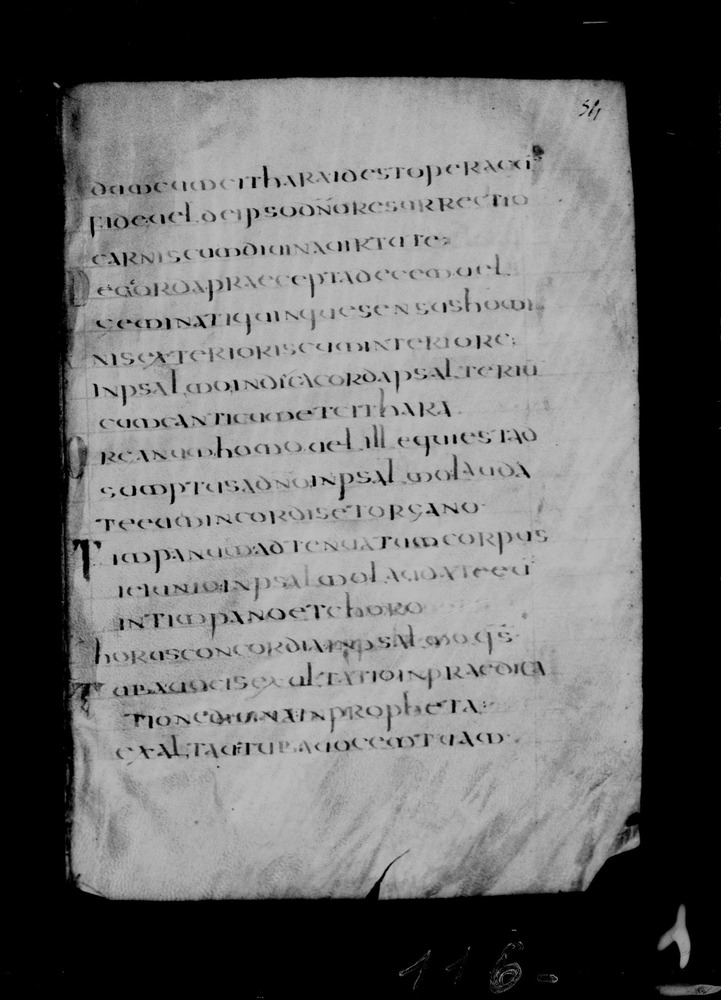 54
dumcumcitharaidestoperacci
fideueldeipsodn̄oresurrectio
carniscumdiuinauirtute;
Decordapraeceptadecemuel
geminatiquinquesensushomi
nisexterioriscuminteriore;
inpsalmoindecacordapsalteriū
cumcanticumetcithara.
Organumhomouelillequiestad
sumptusadn̄oinpsalmolauda
teeumincordisetorgano.
Timpanumadtenuatumcorpus
ieiunioinpsalmolaudateeū
intimpanoetchoro
horusconcordiainpsalmo.qs̄.
Tubauocisexultatioinpraedica
tionediuinainpropheta;
exaltautubauocemtuam.
116.
1